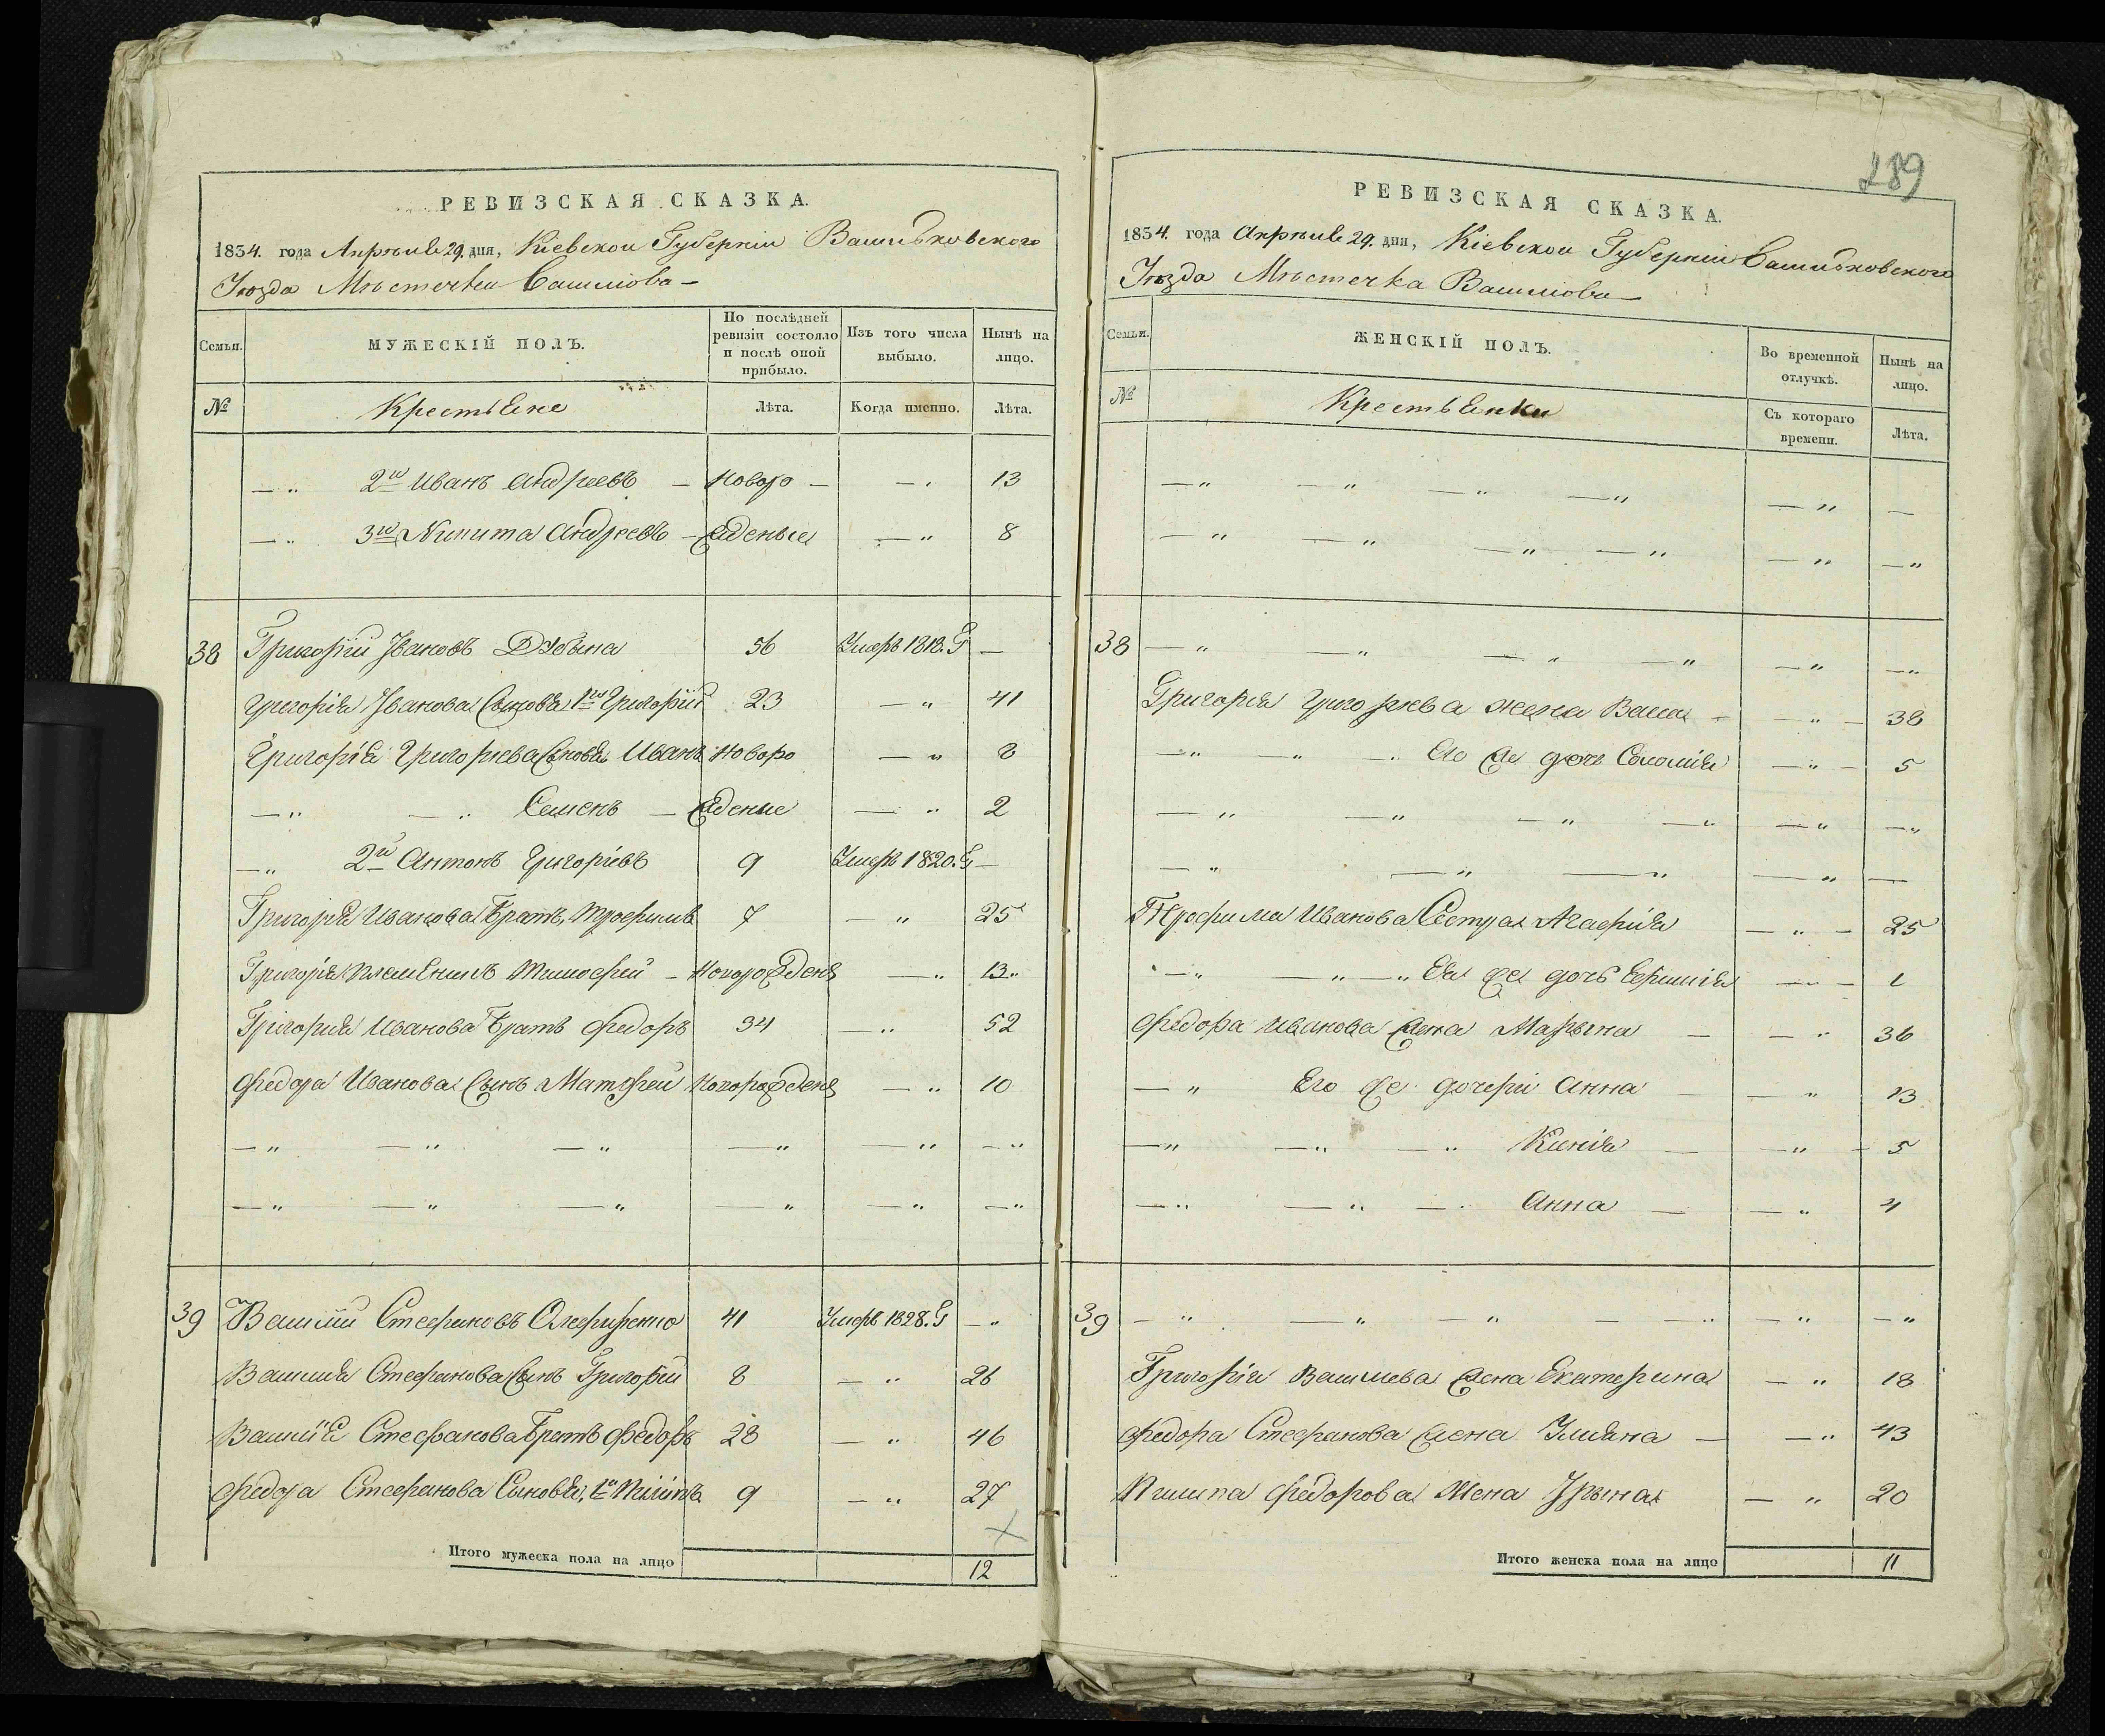 РЕВИЗСКАЯ СКАЗКА.
1834. года Апрѣля 29. дня, Кіевской Губерніи Васильковского
Уѣзда Мѣстечка
Семьи.
МУЖЕСКІЙ ПОЛЪ.
По послѣдней ревизіи состояло и послѣ оной прибыло.
Изъ того числа выбыло.
Нынѣ на лицо.
№
Крестьяне
Лѣта.
Когда именно.
Лѣта.
— „ 2й Иванъ Андреевъ — новоро — — „ 13
— „ 3й Никита Андреевъ — жденые — „ 8
38 Григорій Ивановъ 56 Умеръ 1818. Г —
Григорія Иванова Сыновья 1й Григорій 23 — „ 41
Григорія Григорьева Сыновья Иванъ новоро — „ 8
— „ — „ Семенъ — жденые — „ 2
— „ 2й Антонъ Григорьевъ 9 Умеръ 1820. Г —
Григорія Иванова Братъ, Трофимъ 7 — „ 25
Григорія племеникъ Тимофей — новорожденъ — „ 13 „
Григория Иванова Братъ Федоръ 34 — „ 52
Федора Иванова Сынъ Матфей новорожденъ — „ 10
— „ — „ — „ — „ — „ — „
— „ — „ — „ — „ — „ — „
39 Василій Стефановъ 41 Умеръ 1828. Г — „
Василія Стефанова Сынъ Григорій 8 — „ 26
Василія Стефанова Братъ Федоръ 28 — „ 46
Федора Стефанова Сыновья, 1й Пилипъ 9 — „ 27
Итого мужеска пола на лицо 12
289
РЕВИЗСКАЯ СКАЗКА.
1834. года Апрѣля 29. дня, Кіевской Губерніи Васильковского
Уѣзда Мѣстечка
Семьи.
ЖЕНСКІЙ ПОЛЪ.
Во временной отлучкѣ.
Нынѣ на лицо.
№
Крестьянки
Съ котораго времени.
Лѣта.
— „ — „ — „ — „ — „ —
— „ — „ — „ — „ — „ — „
38 — „ — „ — „ — „ — „ — „
Григорія Григорьева жена — „ — 38
— „ — „ — „ Его же дочь Соломія — „ — 5
— „ — „ — „ — „ — „ — „
— „ — „ — „ — „ —
Трофима Иванова Сестра Агафія — „ — 25
— „ — „ — „ Ея же дочь — „ — 1
Федора Иванова жена Марьина — — „ 36
— „ Его же дочери Анна — — „ 13
— „ — „ — „ Ксенія — — „ — 5
— „ — „ — „ Анна — — „ 4
39 — „ — „ — „ — — „ — „ — „
Григорія Васильева жена Екатерина — „ 18
Федора Стефанова жена Ульяна — — „ 43
Пилипа Федорова Жена Ирына — „ 20
Итого женска пола на лицо 11